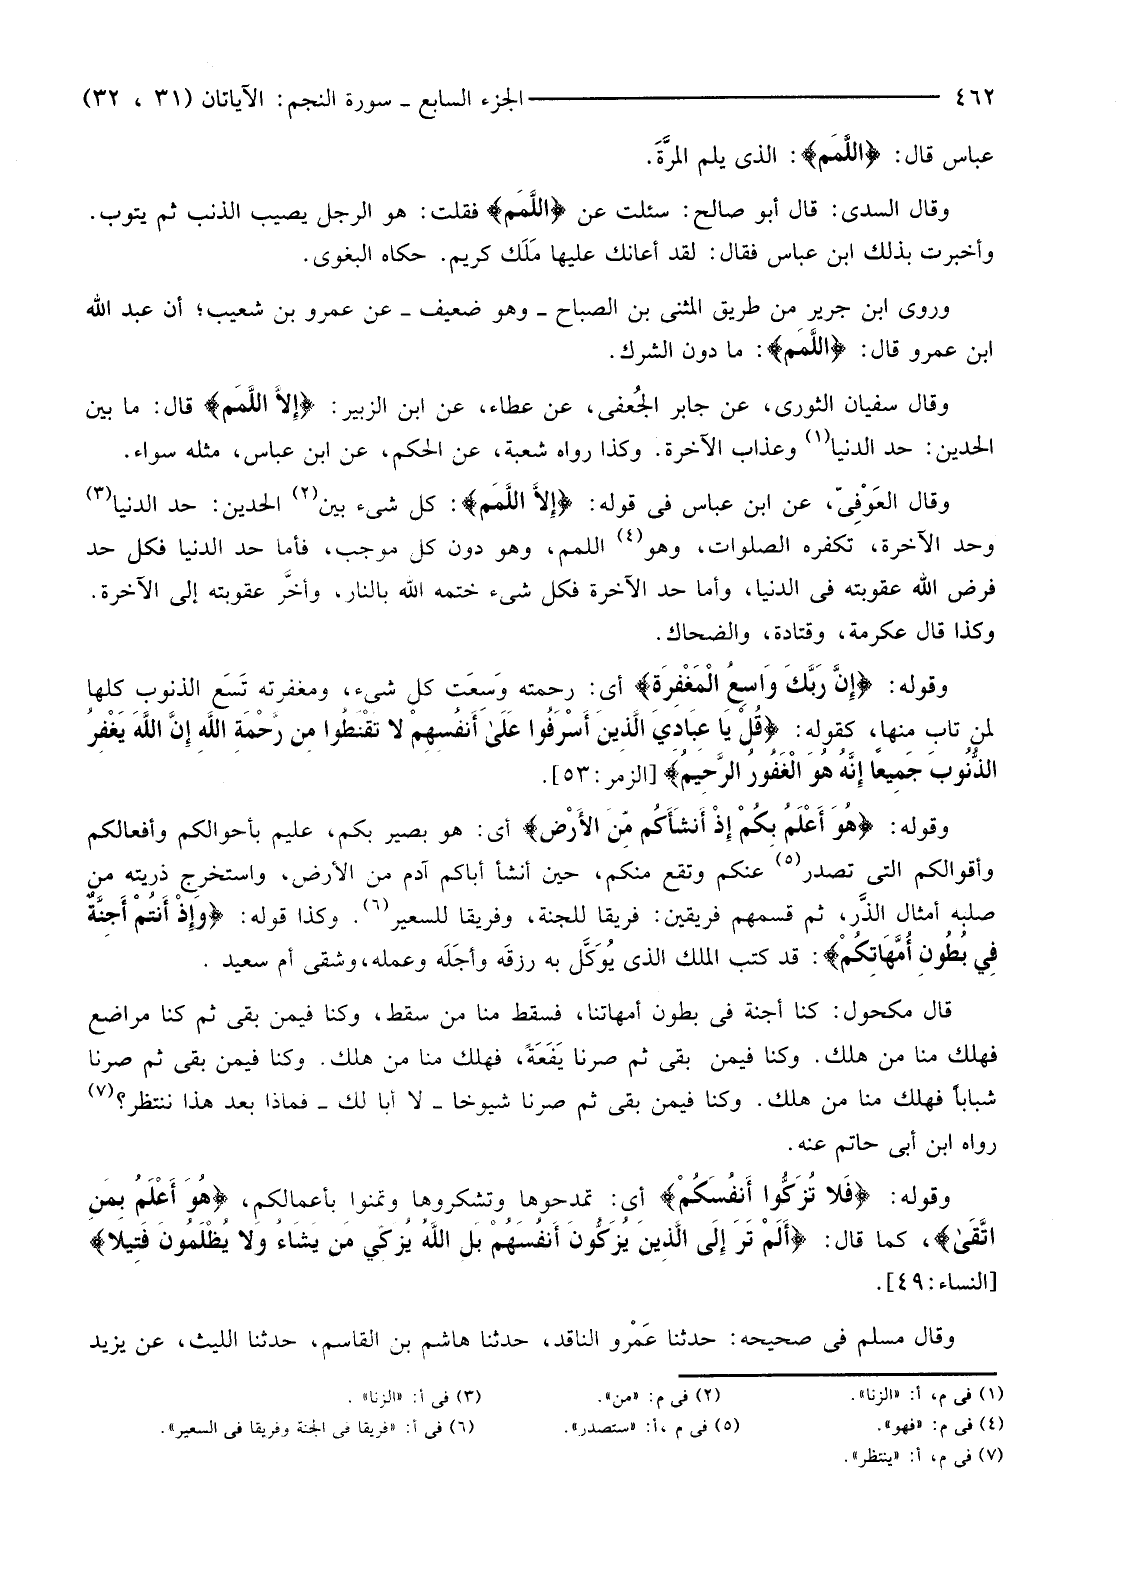 ٤٦٢ ــــــــــ الجزء السابع ـ سورة النجم: الآياتان (٣١ ، ٣٢)
عباس قال: ﴿اللَّمَم﴾: الذى يلم المرَّةَ.
وقال السدى: قال أبو صالح: سئلت عن ﴿اللَّمَم﴾ فقلت: هو الرجل يصيب الذنب ثم يتوب.
وأخبرت بذلك ابن عباس فقال: لقد أعانك عليها مَلَك كريم. حكاه البغوى.
وروى ابن جرير من طريق المثنى بن الصباح ـ وهو ضعيف ـ عن عمرو بن شعيب؛ أن عبد الله
ابن عمرو قال: ﴿اللَّمَم﴾: ما دون الشرك.
وقال سفيان الثورى، عن جابر الجُعفى، عن عطاء، عن ابن الزبير: ﴿إِلاَّ اللَّمَم﴾ قال: ما بين
الحدين: حد الدنيا(١) وعذاب الآخرة. وكذا رواه شعبة، عن الحكم، عن ابن عباس، مثله سواء.
وقال العَوْفِىّ، عن ابن عباس فى قوله: ﴿إِلاَّ اللَّمَم﴾: كل شىء بين(٢) الحدين: حد الدنيا(٣)
وحد الآخرة، تكفره الصلوات، وهو(٤) اللمم، وهو دون كل موجب، فأما حد الدنيا فكل حد
فرض الله عقوبته فى الدنيا، وأما حد الآخرة فكل شىء ختمه الله بالنار، وأخَّر عقوبته إلى الآخرة.
وكذا قال عكرمة، وقتادة، والضحاك.
وقوله: ﴿إِنَّ رَبَّكَ وَاسِعُ الْمَغْفِرَة﴾ أى: رحمته وَسِعَت كل شىء، ومغفرته تَسَع الذنوب كلها
لمن تاب منها، كقوله: ﴿قُلْ يَا عِبَادِيَ الَّذِينَ أَسْرَفُوا عَلَىٰ أَنفُسِهِمْ لا تَقْنَطُوا مِن رَّحْمَةِ اللَّهِ إِنَّ اللَّهَ يَغْفِرُ
الذُّنُوبَ جَمِيعًا إِنَّهُ هُوَ الْغَفُورُ الرَّحِيمُ﴾ [الزمر:٥٣].
وقوله: ﴿هُوَ أَعْلَمُ بِكُمْ إِذْ أَنشَأَكُم مِّنَ الأَرْضِ﴾ أى: هو بصير بكم، عليم بأحوالكم وأفعالكم
وأقوالكم التى تصدر(٥) عنكم وتقع منكم، حين أنشأ أباكم آدم من الأرض، واستخرج ذريته من
صلبه أمثال الذَّر، ثم قسمهم فريقين: فريقا للجنة، وفريقا للسعير(٦). وكذا قوله: ﴿وَإِذْ أَنتُمْ أَجِنَّةٌ
فِي بُطُونِ أُمَّهَاتِكُمْ﴾: قد كتب الملك الذى يُوَكَّل به رزقَه وأجَلَه وعمله،وشقى أم سعيد .
قال مكحول: كنا أجنة فى بطون أمهاتنا، فسقط منا من سقط، وكنا فيمن بقى ثم كنا مراضع
فهلك منا من هلك. وكنا فيمن بقى ثم صرنا يَفَعَةً، فهلك منا من هلك. وكنا فيمن بقى ثم صرنا
شباباً فهلك منا من هلك. وكنا فيمن بقى ثم صرنا شيوخا ـ لا أبا لك ـ فماذا بعد هذا ننتظر؟(٧)
رواه ابن أبى حاتم عنه.
وقوله: ﴿فَلا تُزَكُّوا أَنفُسَكُمْ﴾ أى: تمدحوها وتشكروها وتمنوا بأعمالكم، ﴿هُوَ أَعْلَمُ بِمَنِ
اتَّقَىٰ﴾، كما قال: ﴿أَلَمْ تَرَ إِلَى الَّذِينَ يُزَكُّونَ أَنفُسَهُمْ بَلِ اللَّهُ يُزَكِّي مَن يَشَاءُ وَلا يُظْلَمُونَ فَتِيلا﴾
[النساء:٤٩].
وقال مسلم فى صحيحه: حدثنا عَمْرو الناقد، حدثنا هاشم بن القاسم، حدثنا الليث، عن يزيد
(١) فى م، أ: «الزنا». (٢) فى م: «من». (٣) فى أ: «الزنا» .
(٤) فى م: «فهو». (٥) فى م ،أ: «ستصدر». (٦) فى أ: «فريقا فى الجنة وفريقا فى السعير».
(٧) فى م، أ: «ينتظر».